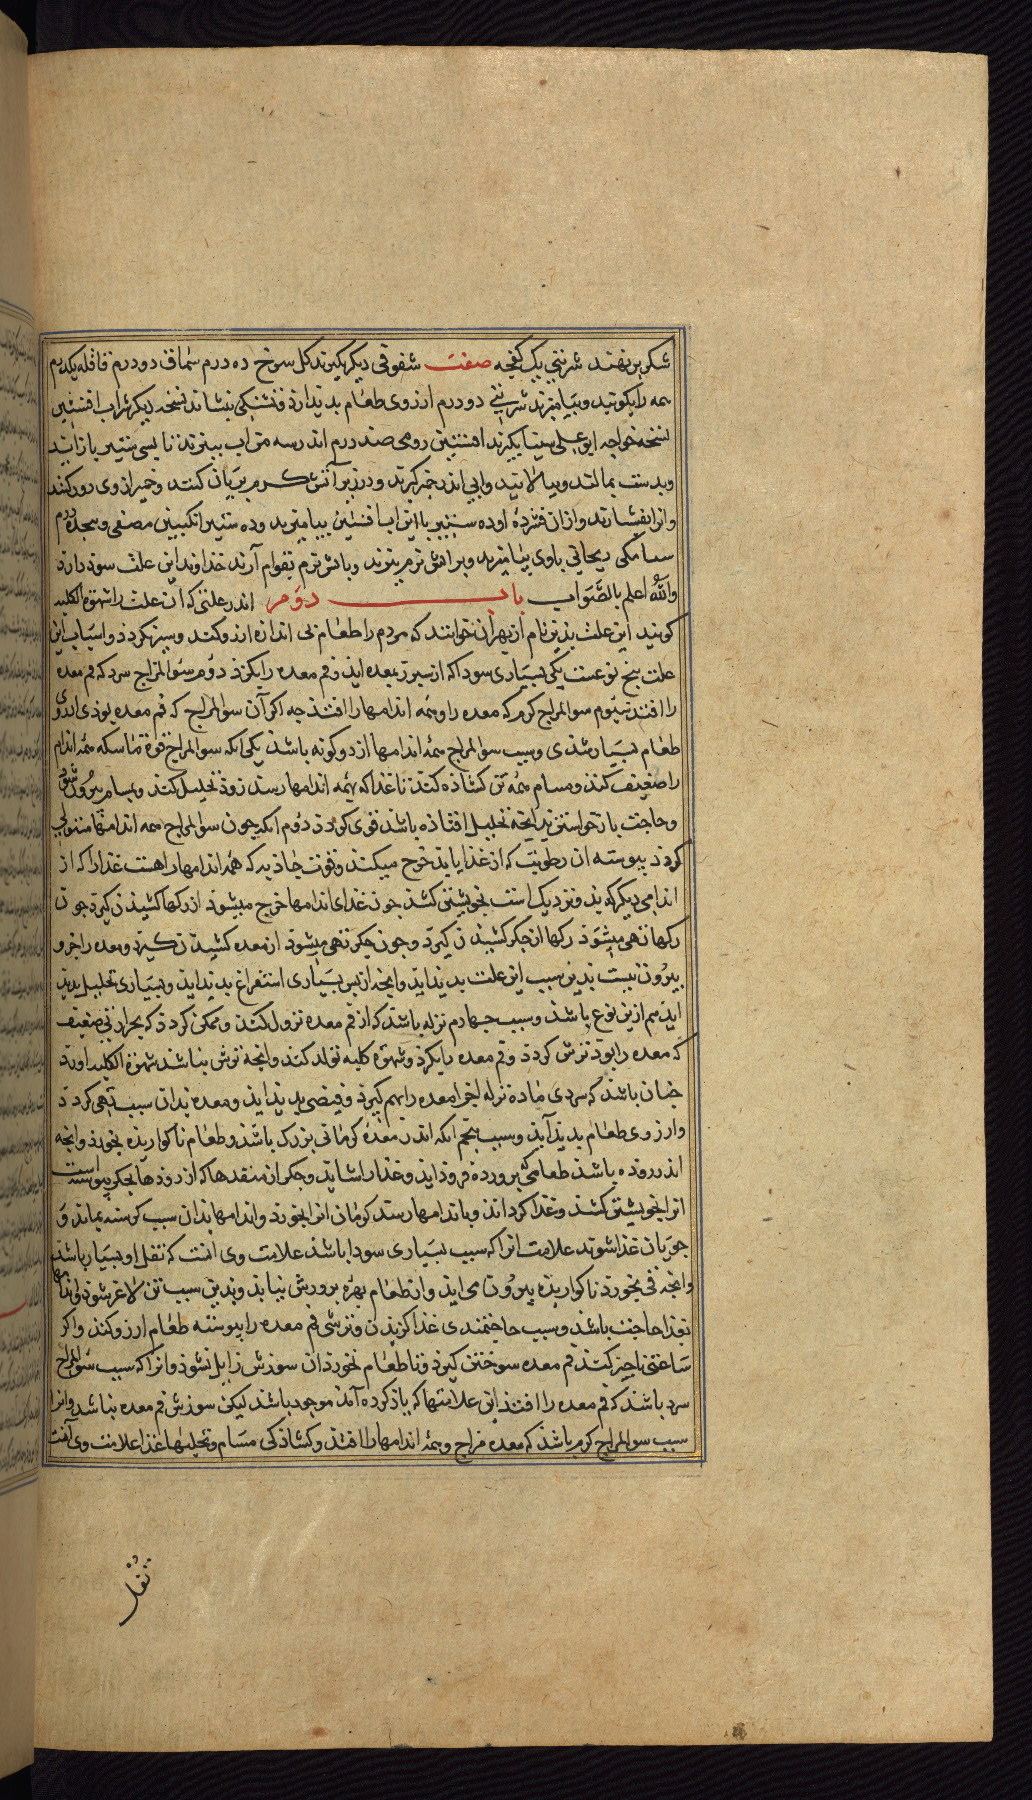 شکر برنهند شربتی یک کفچه صفت سفوفی دیکر بکیرند کل سرخ ده درم سماق دو درم قاقله یکدرم
همه را بکوبند و بیامیزند شربتی دو درم ارزوی طعام بدید ارد و تشنکی بنشاند نسخه دیکر شراب افسنتین
نسخه خواجه ابو علی سینا بکیرند افسنتین رومی صد درم اندر سه من اب بپزند تا بسی ستیر باز اید
و بدست بمالند و بپالایند و ابی اندر خمیر کیرند و در زیر آتش کرم بریان کنند و خمیر از وی دور کنند
و انرا بفشارند و ازان فشرده او ده ستیر با این اب افسنتین بیامیزند و ده ستیر انکبین مصفی و پنجده درم
سک ریحانی با وی بیامیزند و بر اتش نرم بپزند و باتش نرم بقوام آرند خداوند این علت سود دارد
والله اعلم بالصواب باب دوم اندر علتی که ان علت را شهوة الکلبیه
کویند این علت بدین نام از بهر آن خوانند که مردم را طعام بی اندازه ارزو کند و سیر نکردد و اسباب این
علت پنج نوعست یکی بسیاری سودا که از سپرز بمعده اید و فم معده را بکزد دوم سوالمزاج سرد که فم معده
را افتد سیوم سوالمزاج کرم که معده را و همه اندامها را افتد چه اکر آن سوالمزاج که فم معده بودی ارزوی
طعام بسیار شدی و سبب سوالمزاج همه اندامها از دو کونه باشد یکی انکه سوالمزاج قوة ماسکه همه اندام
را ضعیف کند و مسام همه تن کشاده کند تا غذا که بهمه اندامها رسد زود تحلیل کند و بمسام بیرون شود
و حاجت باز خواستن بدانچه تحلیل افتاده باشد قوی کردد دوم انکه چون سوالمزاج همه اندامها مستولی
کردد پیوسته ان رطوبت که از غذا یابد خرج میکند و قوت جاذبه که همه اندامها راهست غذا را که از
اندامی دیکر که بدو نزدیک است بخویشتن کشد چون غذای اندامها خرج میشود از رکها کشیدن کیرد چون
رکها تهی میشود رکها از جکر کشیدن کیرد و چون جکر تهی میشود از معده کشیدن کیرد و معده را جز و
بیرون نیست بدین سبب این علت بدید اید و انچه از پس بسیاری استفراغ بدید اید و بسیاری تحلیل بدید
اید هم ازین نوع باشد و سبب چهارم نزله باشد که از فم معده نزول کند و ممکن کردد که بحرارتی ضعیف
که معده را بود ترش کردد و فم معده را بکزد و شهوة کلبه تولد کند و انچه ترش نباشد شهوة الکلبه اورد
چنان باشد که سردی ماده نزله اجزا معده را بهم کیرد و قبضی بدید اید و معده بدان سبب تهی کردد
و ارزوی طعام بدید آید و سبب پنجم انکه اندر معده کرمانی بزرک باشد و طعام ناکواریده بخورد و انچه
اندر روده باشد طعامی که پرورده فرود اید و غذا را شاید و جکر از منفدها که از روده هابجکر پیوسته است
انرا بخویشتن کشد و غذا کرداند و باندامها رسد کرمان انرا بخورد و اندامها بدان سبب کرسنه بماند و
جویان غذا شوند علامت انرا که سبب بسیاری سودا باشد علامت وی انست که ثفل او بسیار باشد
و انچه فی بخورد ناکواریده بیرون می اید و از طعام بهره پرورش نیابد و بدین سبب تن لاغر شود و اندامها
بغذا حاجت باشد و سبب حاجتمندی غذا کزیدن و ترشی فم معده را پیوسته طعام ارزو کند و اکر
ساعتی تاخیر کنند فم معده سوختن کیرد و تا طعام نخورد ان سوزش زایل نشود و انرا که سبب سوالمزاج
سرد باشد که فم معده را افتد این علامتها که یاد کرده آمد موجود باشد لیکن سوزش فم معده نباشد و انرا
سبب سوالمزاج کرم باشد که معده مزاج و همه اندامها را افتد و کشادکی مسام و تحلیلها غذا علامت وی آنست
ثفل